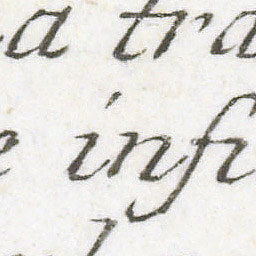 a tra
e infi